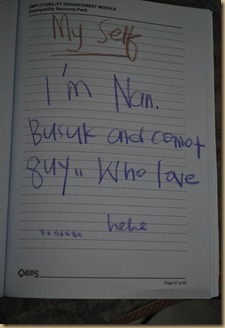 EMPLOYABILITY ENHANCEMENT MODULE
Employability Resource Pack
My Self
I'm Nan.
Busuk and comot
guy,, Who love
hehe